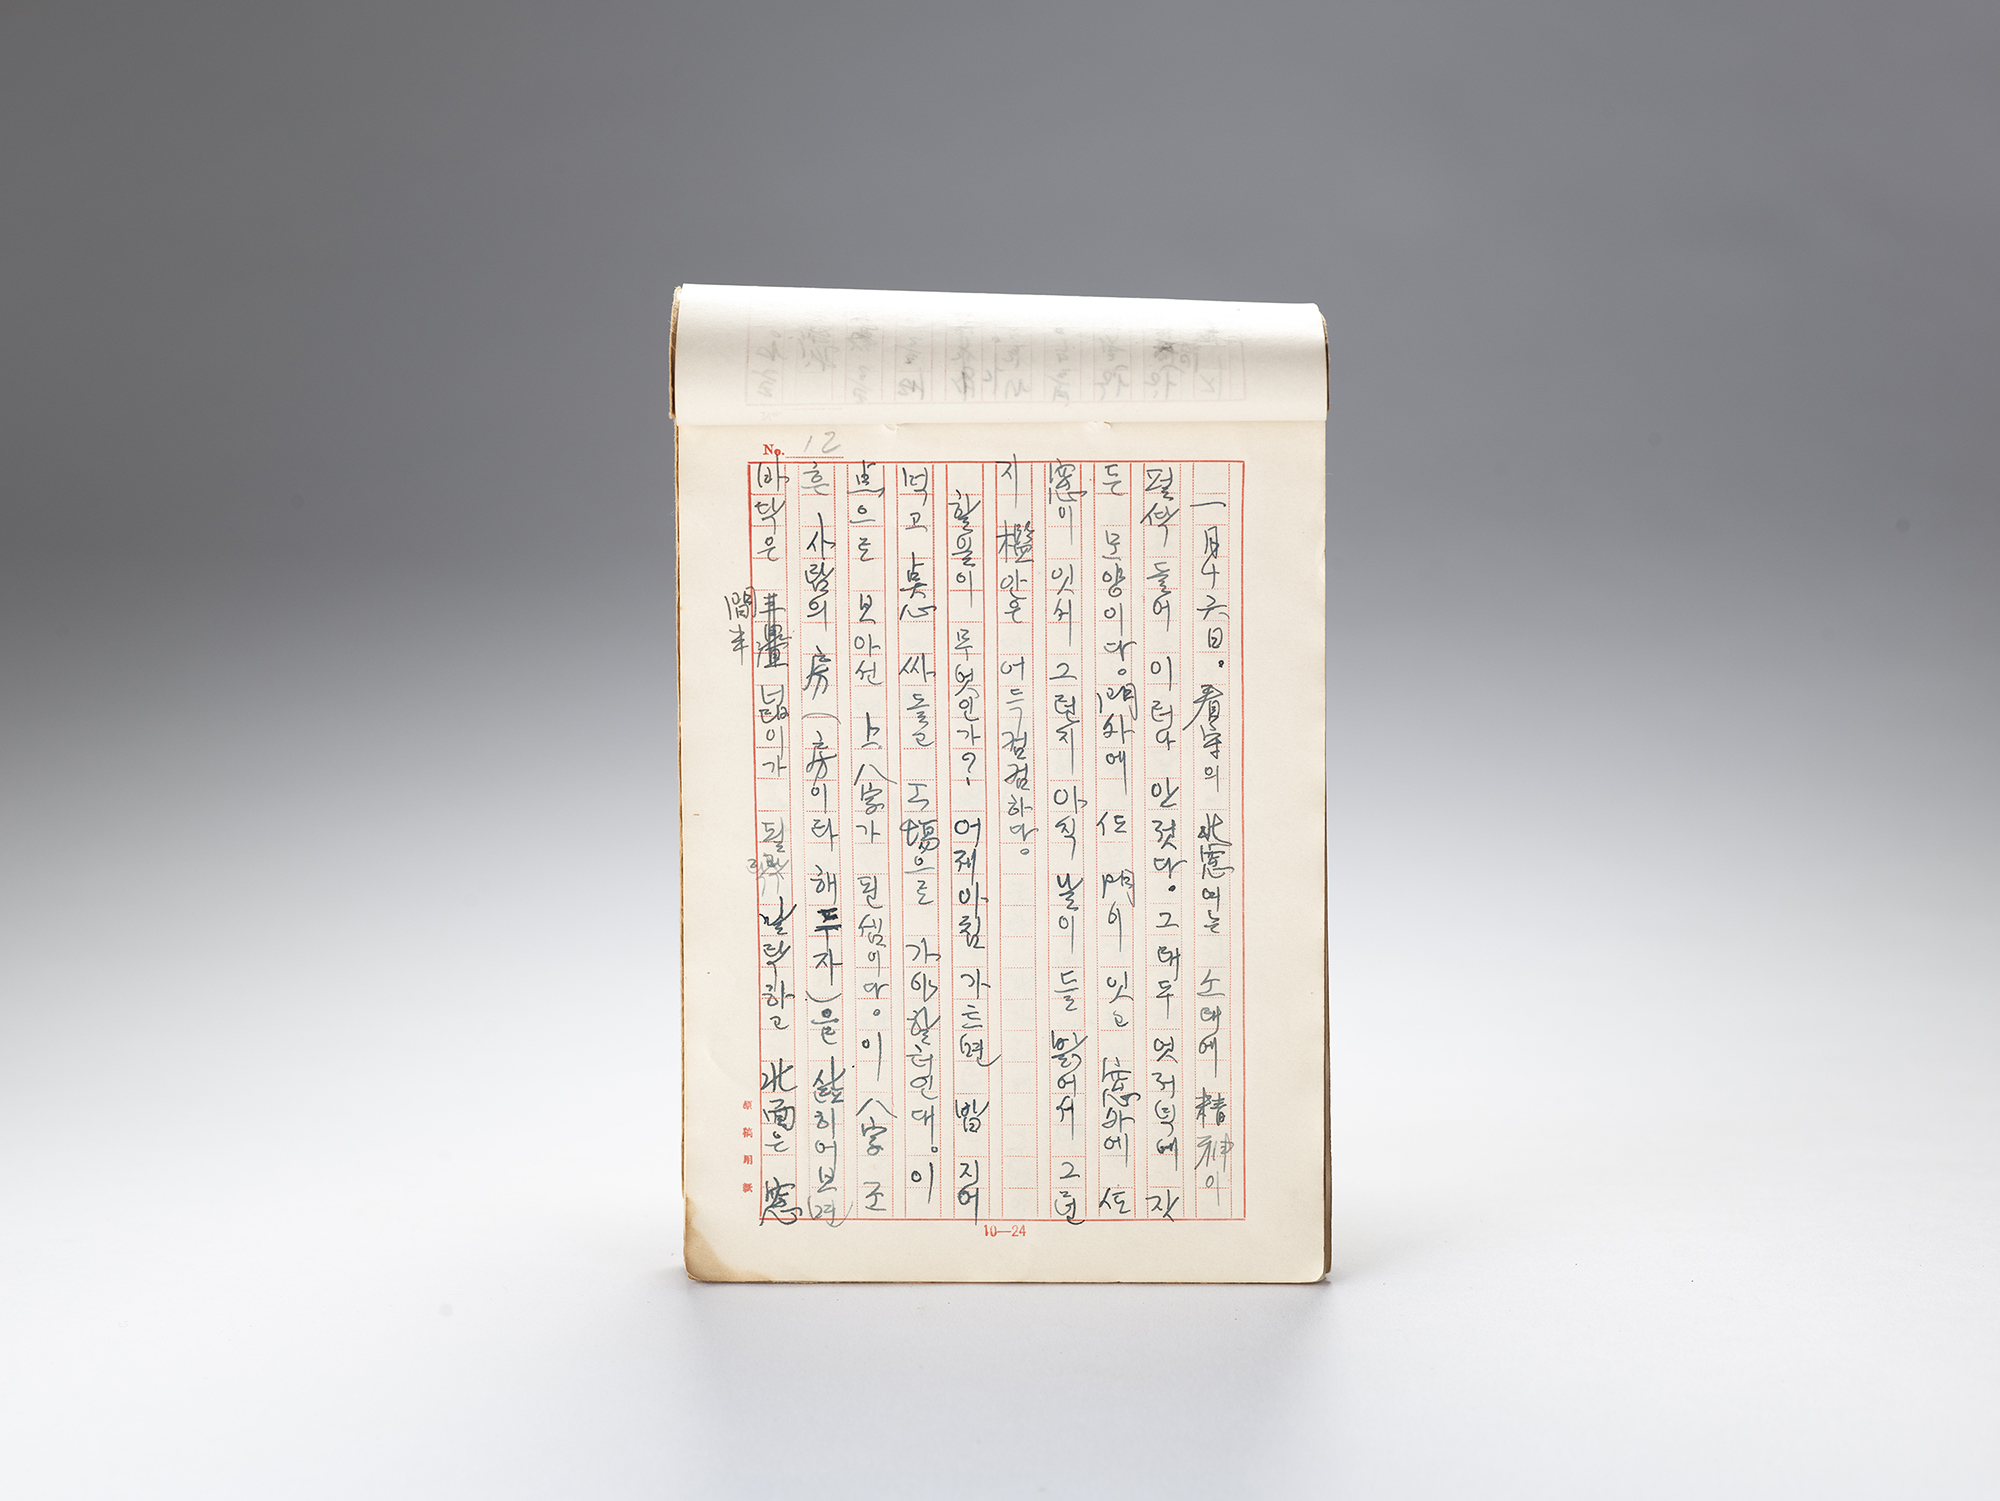 No. 12
一月十六日。看守의 北窓여는 소래에 精神이
펄석 들어 이러나 안젓다。그래두 엿저녁에 잣
든 모양이다。門外에 또 門이 잇고 窓外에 또
窓이 잇서 그런지 아직 날이 들 밝어서 그런
지 檻안은 어득컴컴하다。
할 일이 무엇인가? 어제 아침 가트면 밥 지어
먹고 点心 싸들고 工場으로 가야할 터인대。이
点으로 보아선 上八字가 된 셈이다。이 八字 조
흔 사람의 房(房이라 해두자)을 하여보면
바닥은 間半 넓이가 될락 말락하고 北面은 窓
原稿用紙
10—24